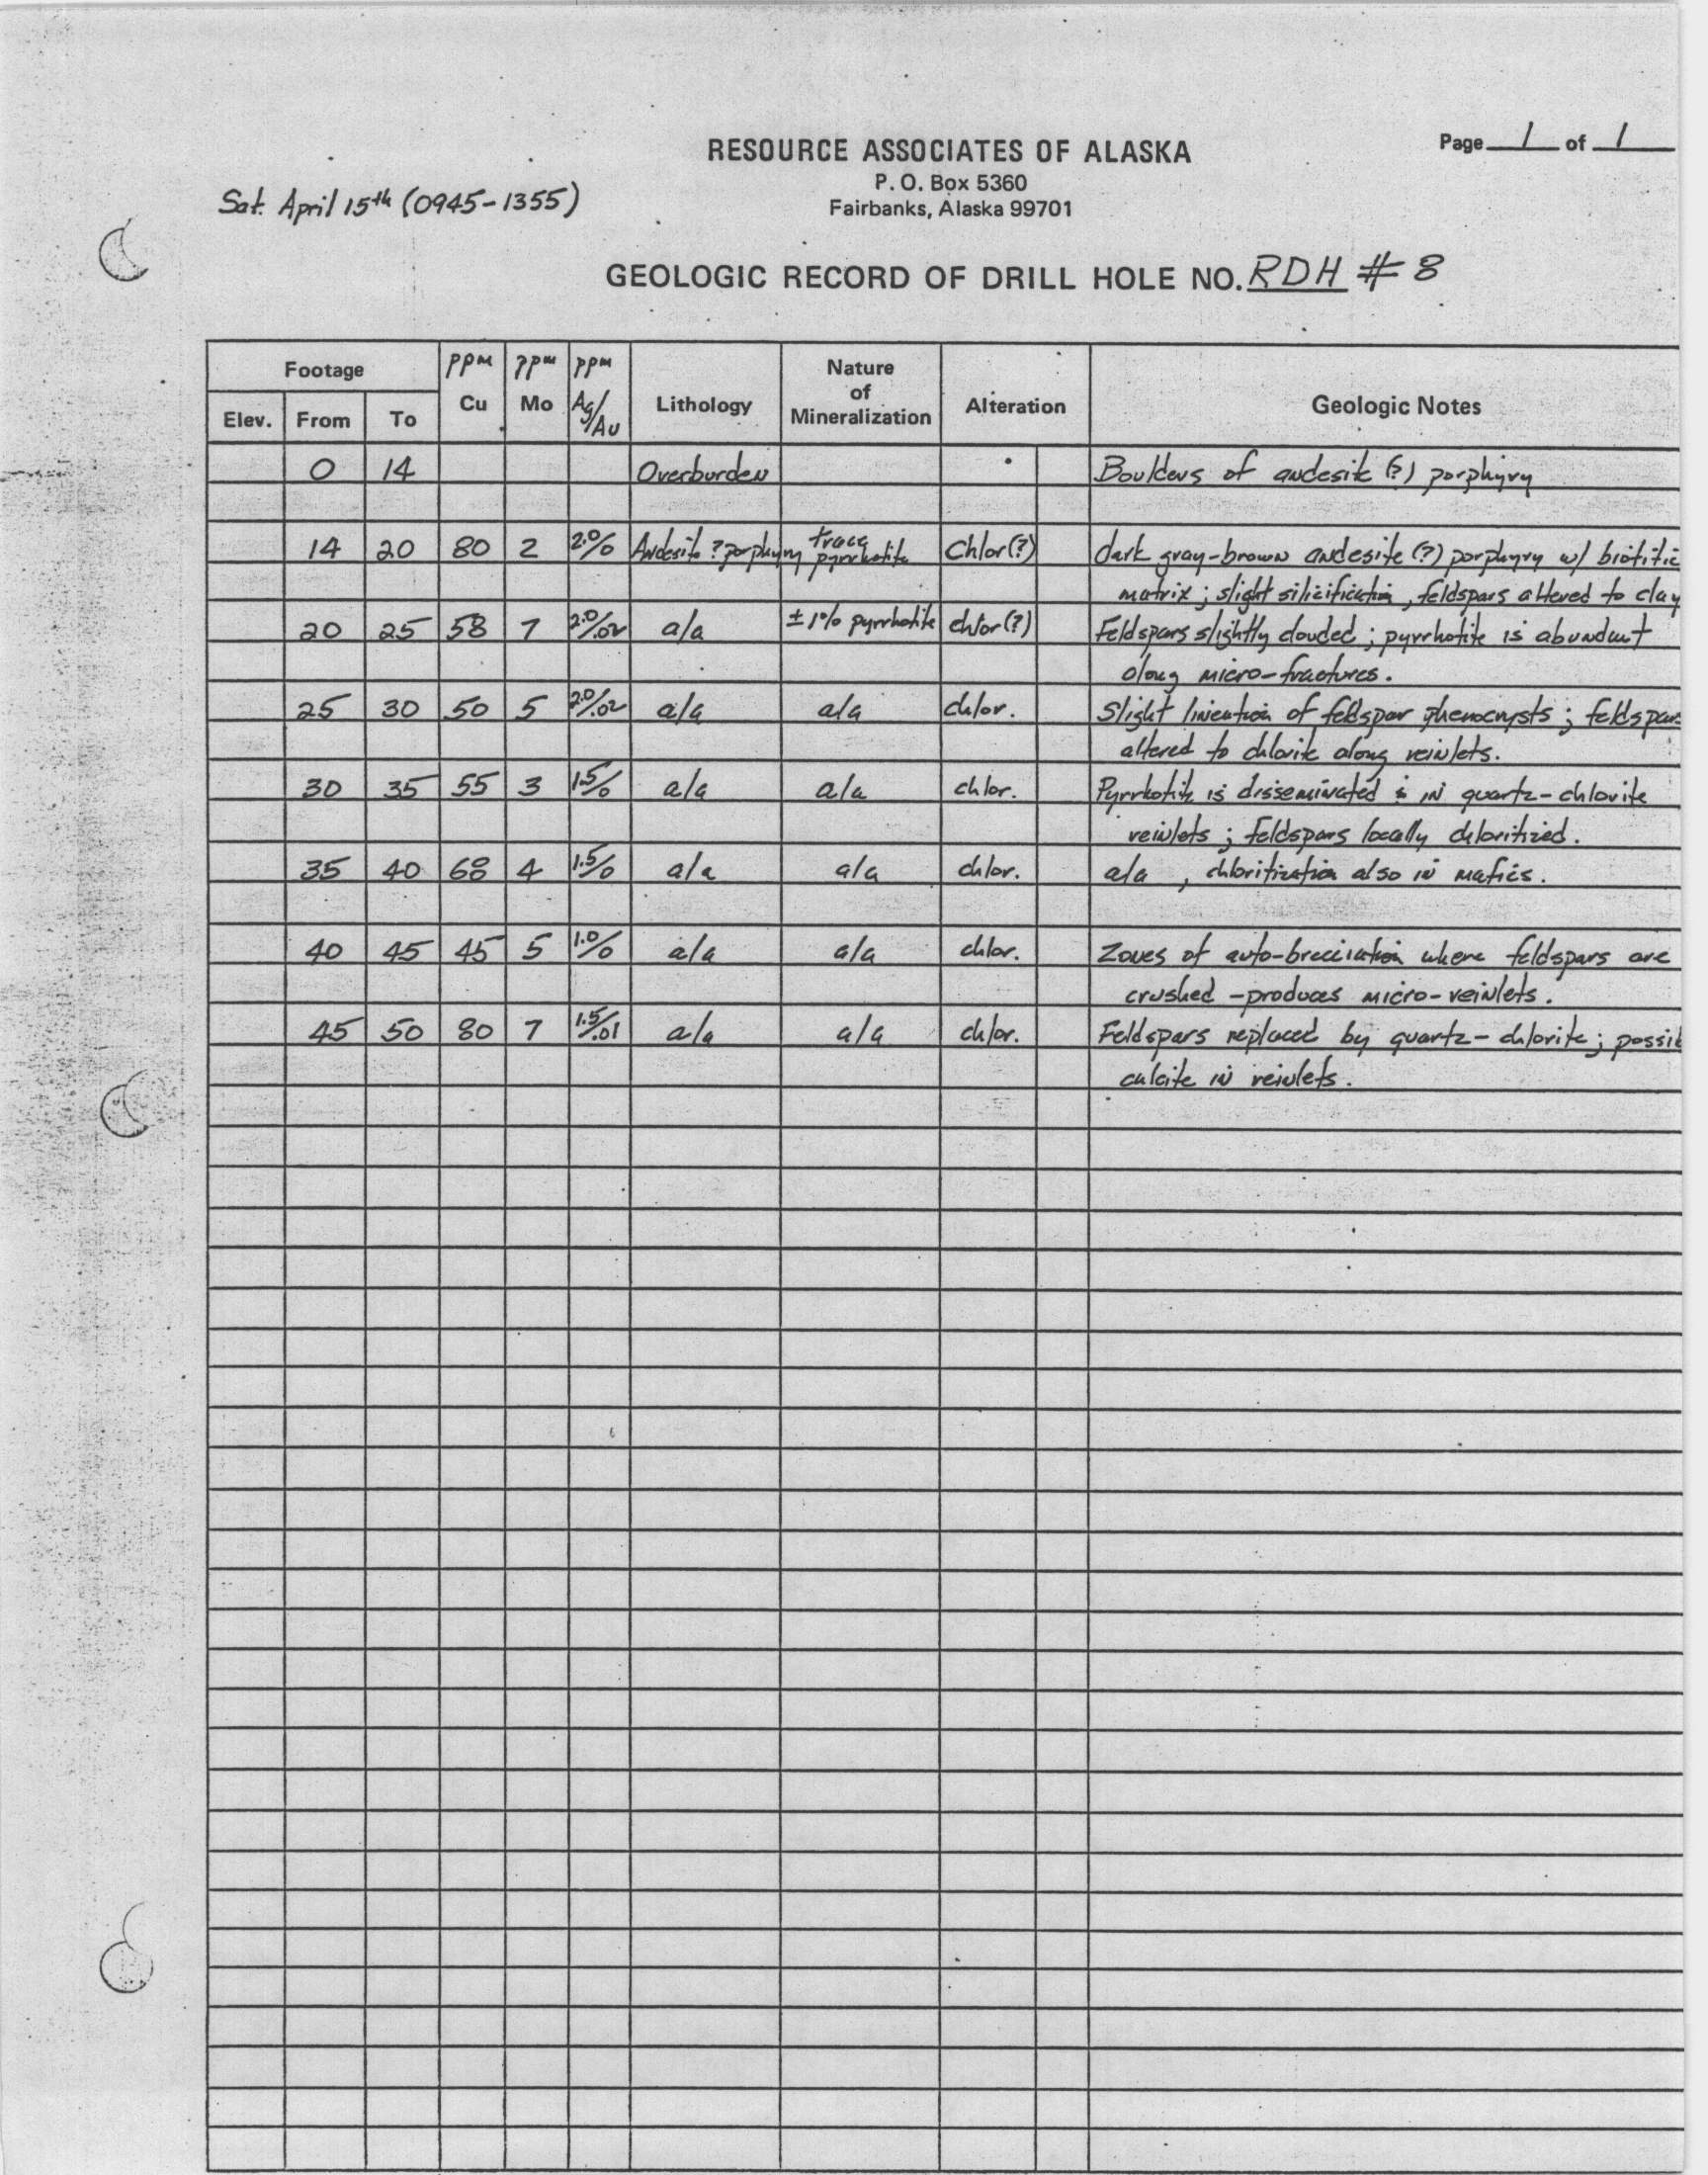 Page 1 of 1
RESOURCE ASSOCIATES OF ALASKA
P. O. Box 5360
Fairbanks, Alaska 99701
Sat. April 15th (0945-1355)
GEOLOGIC RECORD OF DRILL HOLE NO. RDH # 8
Footage ppm ppm ppm Nature
of
Elev. From To Cu Mo Ag/Au Lithology Mineralization Alteration Geologic Notes
0 14 Overburden Boulders of andesite (?) porphyry
14 20 80 2 2.0/0 Andesite ? porphyry trace pyrrhotite Chlor(?) dark gray-brown andesite (?) porphyry w/ biotitic
matrix; slight silicification, feldspars altered to clay
20 25 58 7 2.0/.02 a/a ± 1% pyrrhotite chlor(?) Feldspars slightly clouded; pyrrhotite is abundant
along micro-fractures.
25 30 50 5 2.0/.02 a/a a/a chlor. Slight lineation of feldspar phenocrysts; feldspars
altered to chlorite along veinlets.
30 35 55 3 1.5/0 a/a a/a chlor. Pyrrhotite is disseminated & in quartz-chlorite
veinlets; feldspars locally chloritized.
35 40 68 4 1.5/0 a/a a/a chlor. a/a, chloritization also in mafics.
40 45 45 5 1.0/0 a/a a/a chlor. Zones of auto-brecciation where feldspars are
crushed - produces micro-veinlets.
45 50 80 7 1.5/.01 a/a a/a chlor. Feldspars replaced by quartz-chlorite; possib
calcite in veinlets.